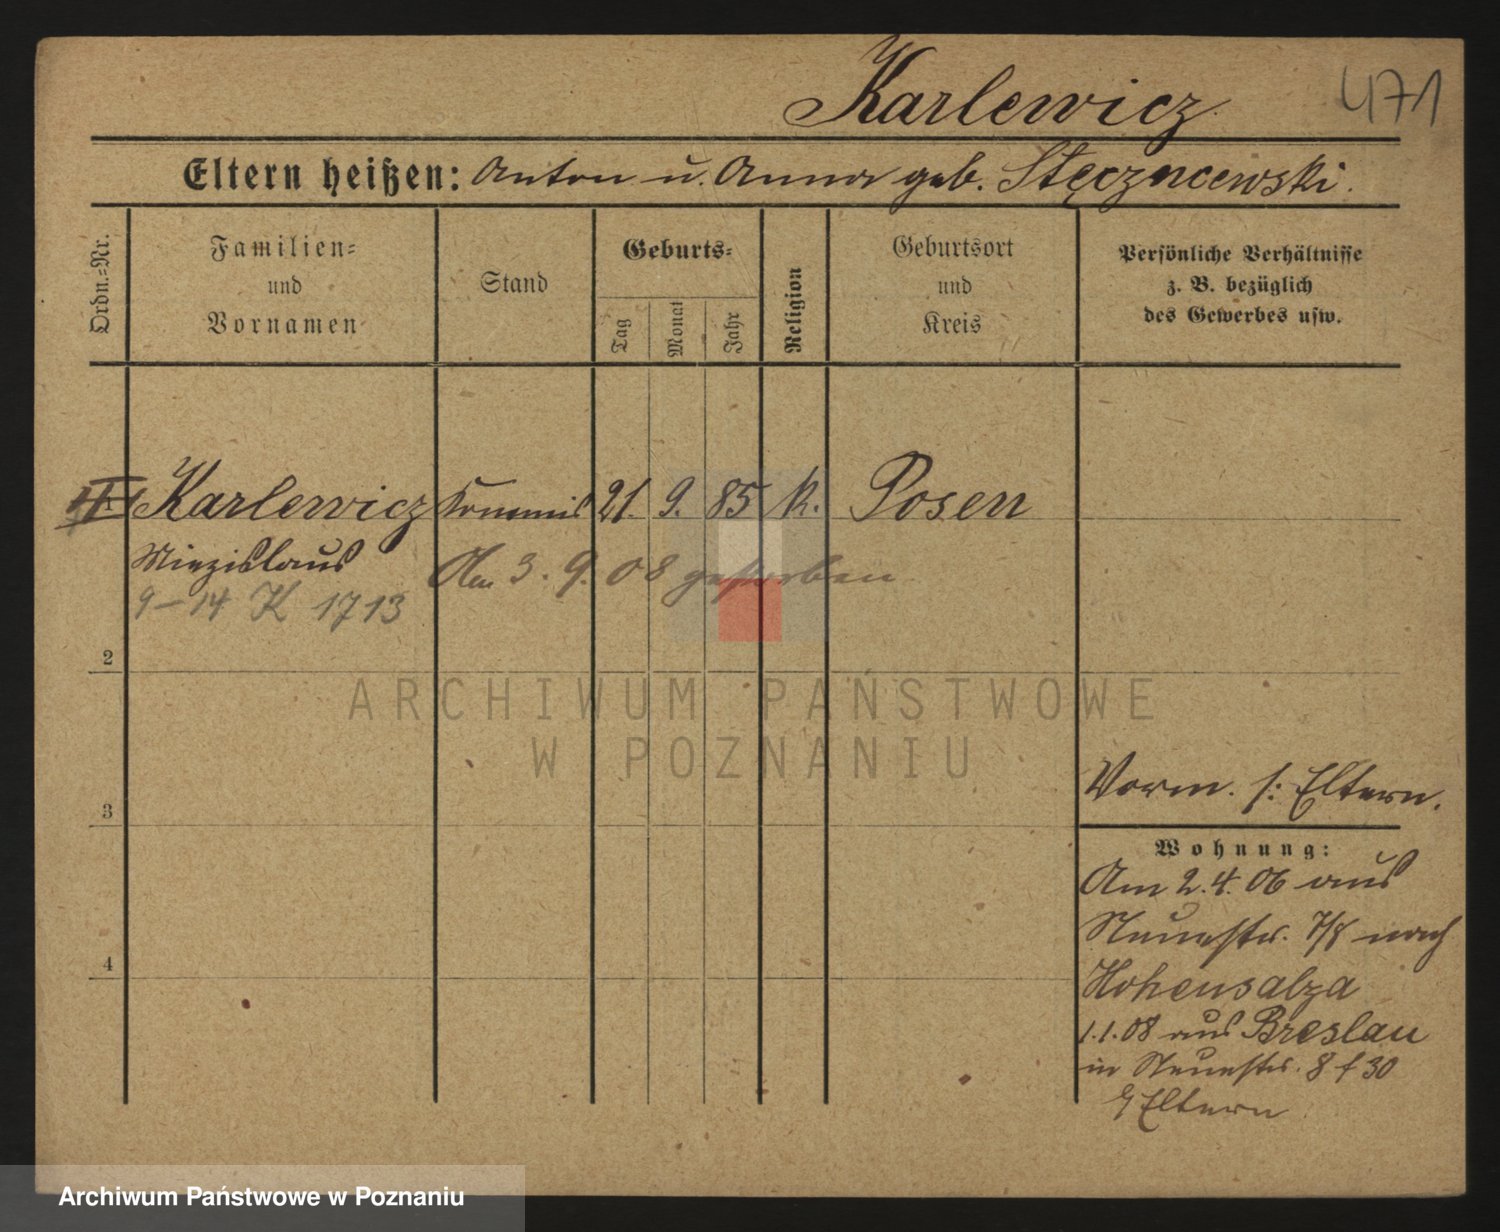 Karlewicz 471
Eltern heißen: Anton u. Anna geb.
Ordn.=Nr.
Familien=
und
Vornamen
Stand
Geburts=
Tag
Monat
Jahr
Religion
Geburtsort
und
Kreis
Persönliche Verhältnisse
z. B. bezüglich
des Gewerbes usw.
Karlewicz Kommis 21. 9. 85 k. Posen
Miezislaus
Am 3. 9. 08 gestorben
9–14 K 1713
2
ARCHIWUM PAŃSTWOWE
W POZNANIU
Vorm. s: Eltern.
3
Wohnung:
Am 2. 4. 06 aus
Neuestr. 7/8 nach
4
Hohensalza
1.1.08 aus Breslau
in Neuestr. 8 f 30
Eltern
Archiwum Państwowe w Poznaniu